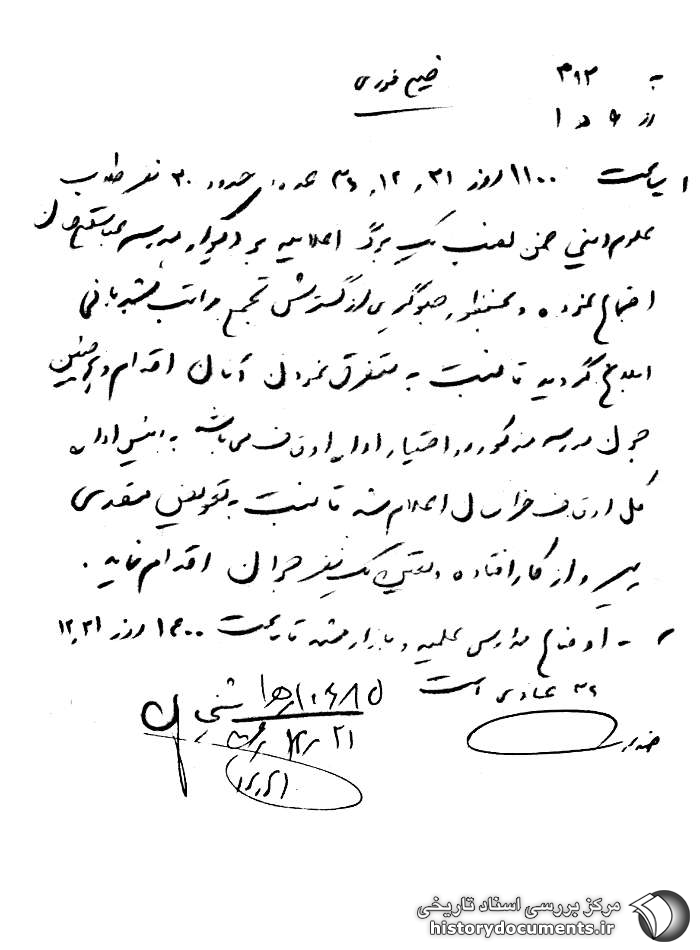 به ۳۱۲ خیلی فوری
از ۶ ه ۱
۱ ساعت ۱۱۰۰ روز ۳۱ر۱۲ر۳۶ عده‌ای حدود ۳۰ نفر طلاب
علوم دینی ضمن نصب یک برگ اعلامیه بر دیوار مدرسه عباسقلی‌خان
اجتماع نموده و بمنظور جلوگیری از گسترش تجمع مراتب بشهربانی
ابلاغ گردید تا نسبت به متفرق نمودن آنان اقدام و همچنین
چون مدرسه مذکور در اختیار اداره اوقاف می‌باشد به رئیس اداره
کل اوقاف خراسان اعلام شد تا نسبت به تعویض متصدی
پیر و از کار افتاده و تعیین یک نفر جوان اقدام نماید.
۲ - اوضاع مدارس علمیه و بازار مشهد تا ساعت ۱۶۰۰ روز ۳۱ر۱۲
۳۶ عادی است
۱۰۶۸۵
۲۱
مرکز بررسی اسناد تاریخی
historydocuments.ir